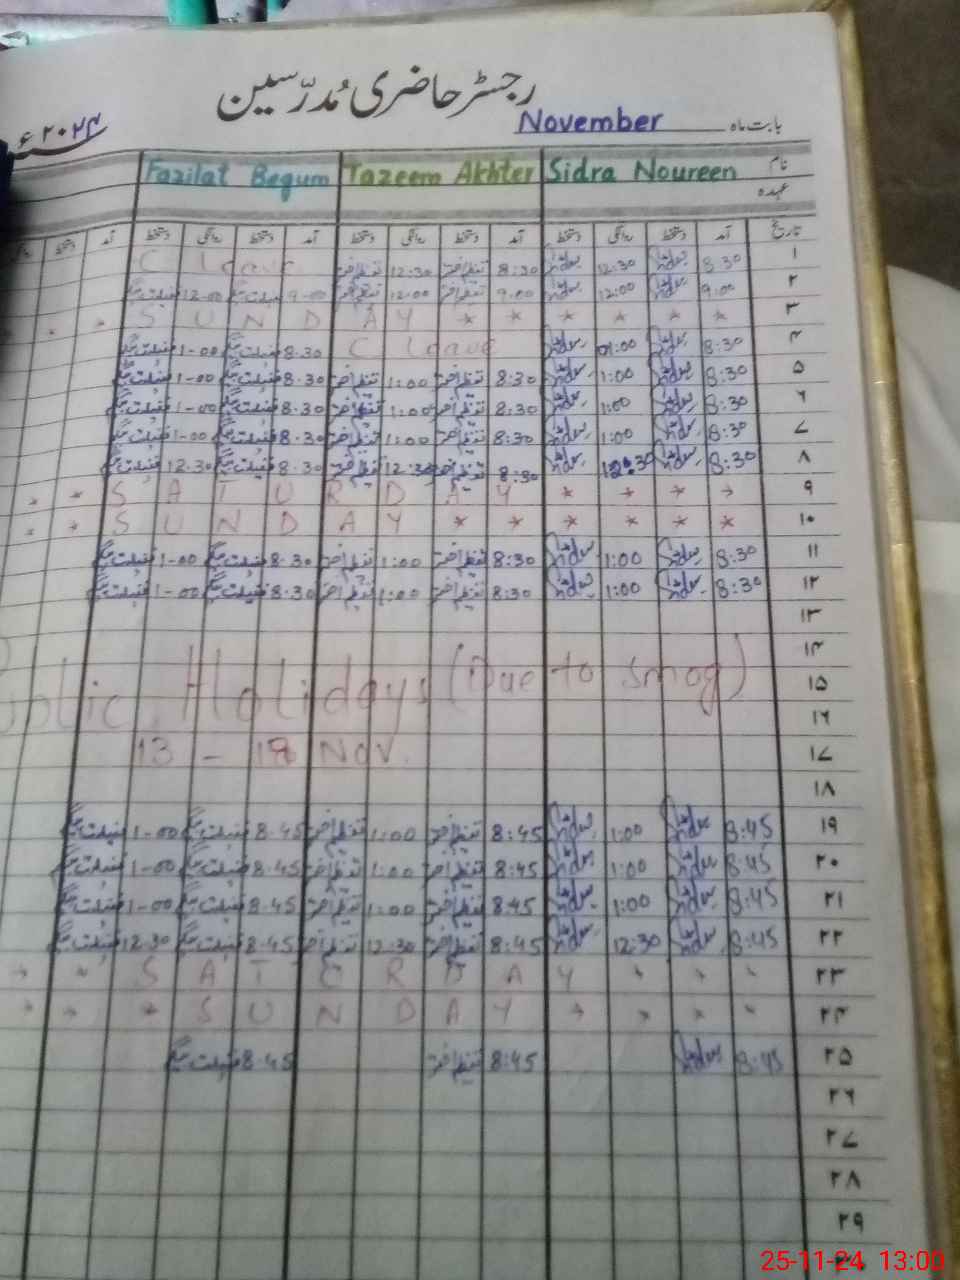 رجسٹر حاضری مُدرّسین
بابت ماہ November ۲۰۲۴ء
نام Sidra Noureen Tazeem Akhter Fazilat Begum
عہدہ
تاریخ آمد دستخط روانگی دستخط آمد دستخط روانگی دستخط آمد دستخط روانگی دستخط آمد دستخط
۱ 8:30 Sidra 12:30 Sidra 8:30 تعظیم اختر 12:30 تعظیم اختر C leave
۲ 9:00 Sidra 12:00 Sidra 9:00 تعظیم اختر 12:00 تعظیم اختر 9-00 فضیلت بیگم 12-00 فضیلت بیگم
۳ SUNDAY * * * * *
۴ 8:30 Sidra 01:00 Sidra C leave 8.30 فضیلت بیگم 1-00 فضیلت بیگم
۵ 8:30 Sidra 1:00 Sidra 8:30 تعظیم اختر 1:00 تعظیم اختر 8.30 فضیلت بیگم 1-00 فضیلت بیگم
۶ 8:30 Sidra 1:00 Sidra 8:30 تعظیم اختر 1:00 تعظیم اختر 8.30 فضیلت بیگم 1-00 فضیلت بیگم
۷ 8:30 Sidra 1:00 Sidra 8:30 تعظیم اختر 1:00 تعظیم اختر 8.30 فضیلت بیگم 1-00 فضیلت بیگم
۸ 8:30 Sidra 12:30 Sidra 8:30 تعظیم اختر 12:30 تعظیم اختر 8.30 فضیلت بیگم 12.30 فضیلت بیگم
۹ * * SATURDAY * * * *
۱۰ * * SUNDAY * * * * *
۱۱ 8:30 Sidra 1:00 Sidra 8:30 تعظیم اختر 1:00 تعظیم اختر 8.30 فضیلت بیگم 1-00 فضیلت بیگم
۱۲ 8:30 Sidra 1:00 Sidra 8:30 تعظیم اختر 1:00 تعظیم اختر 8.30 فضیلت بیگم 1-00 فضیلت بیگم
۱۳
۱۴
۱۵ Public Holidays (Due to smog)
۱۶
۱۷ 13 - 18 Nov.
۱۸
۱۹ 8:45 Sidra 1:00 Sidra 8:45 تعظیم اختر 1:00 تعظیم اختر 8.45 فضیلت بیگم 1-00 فضیلت بیگم
۲۰ 8:45 Sidra 1:00 Sidra 8:45 تعظیم اختر 1:00 تعظیم اختر 8.45 فضیلت بیگم 1-00 فضیلت بیگم
۲۱ 8:45 Sidra 1:00 Sidra 8:45 تعظیم اختر 1:00 تعظیم اختر 8.45 فضیلت بیگم 1-00 فضیلت بیگم
۲۲ 8:45 Sidra 12:30 Sidra 8:45 تعظیم اختر 12:30 تعظیم اختر 8.45 فضیلت بیگم 12.30 فضیلت بیگم
۲۳ * * SATERDAY * * *
۲۴ * * * SUNDAY * * * *
۲۵ 8:45 Sidra 8:45 تعظیم اختر 8.45 فضیلت بیگم
۲۶
۲۷
۲۸
۲۹
25-11-24 13:00